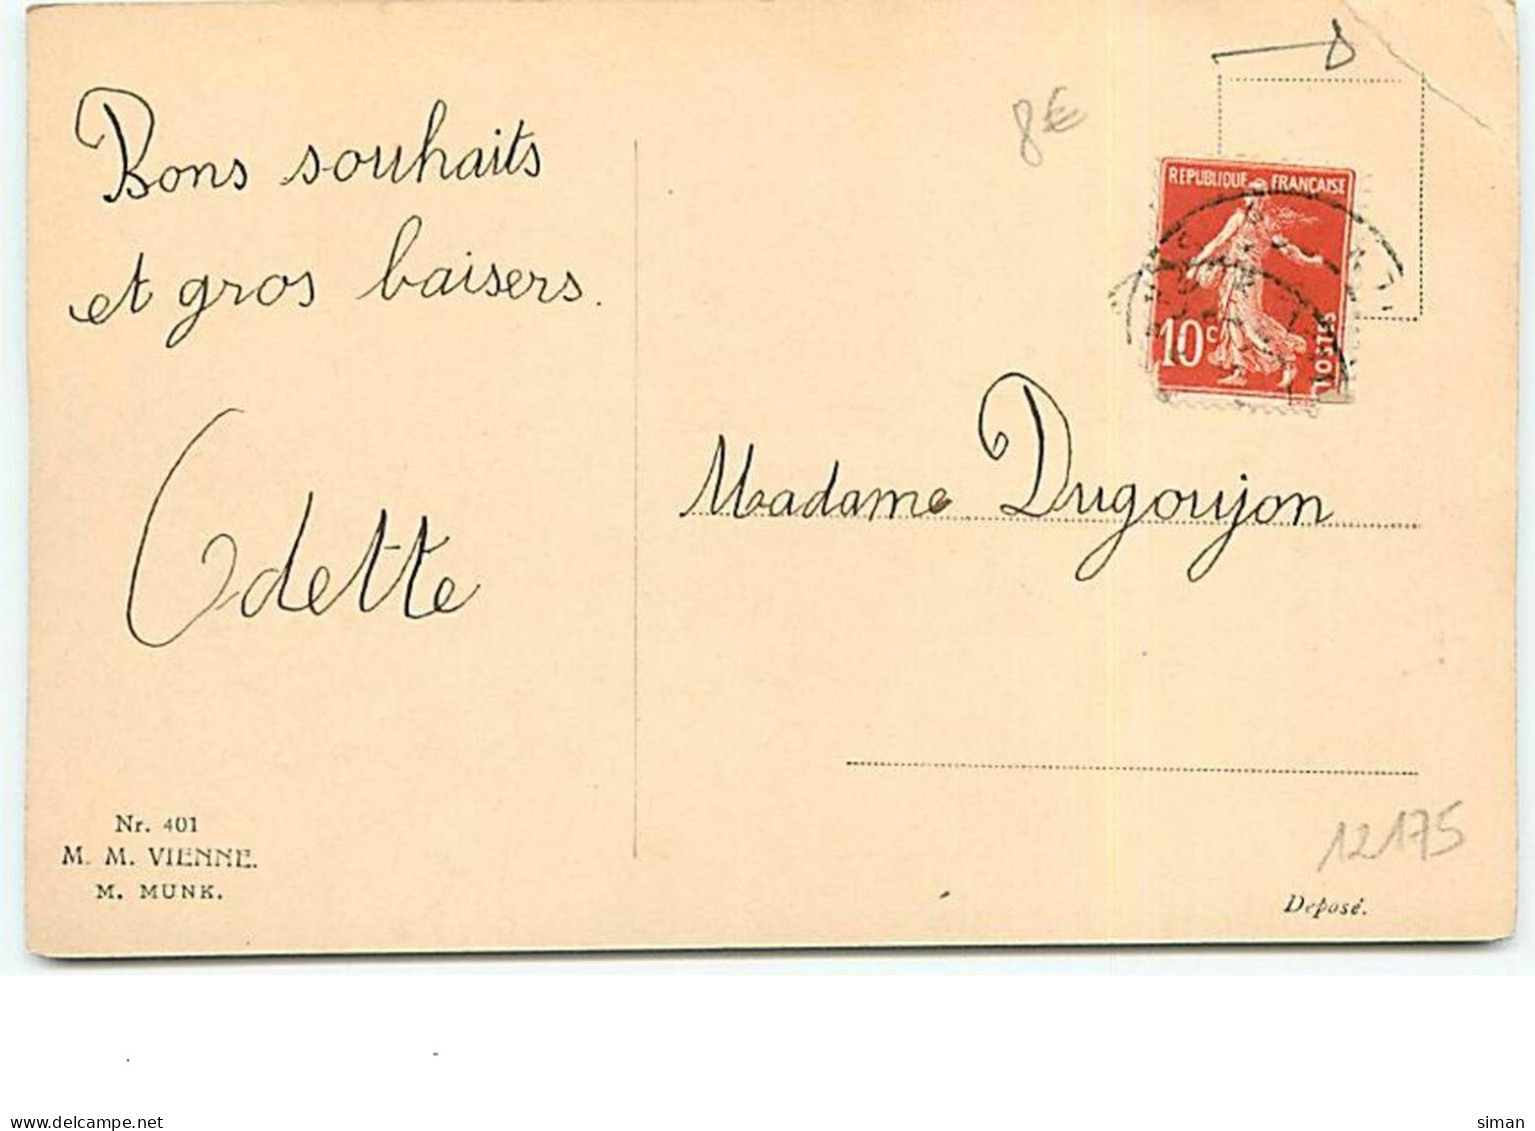 Bons souhaits
et gros baisers.
Odette
8€
REPUBLIQUE FRANÇAISE
10c
POSTES
Madame Dugoujon
Nr. 401
M. M. VIENNE.
M. MUNK.
12175
Deposé.
www.delcampe.net
siman